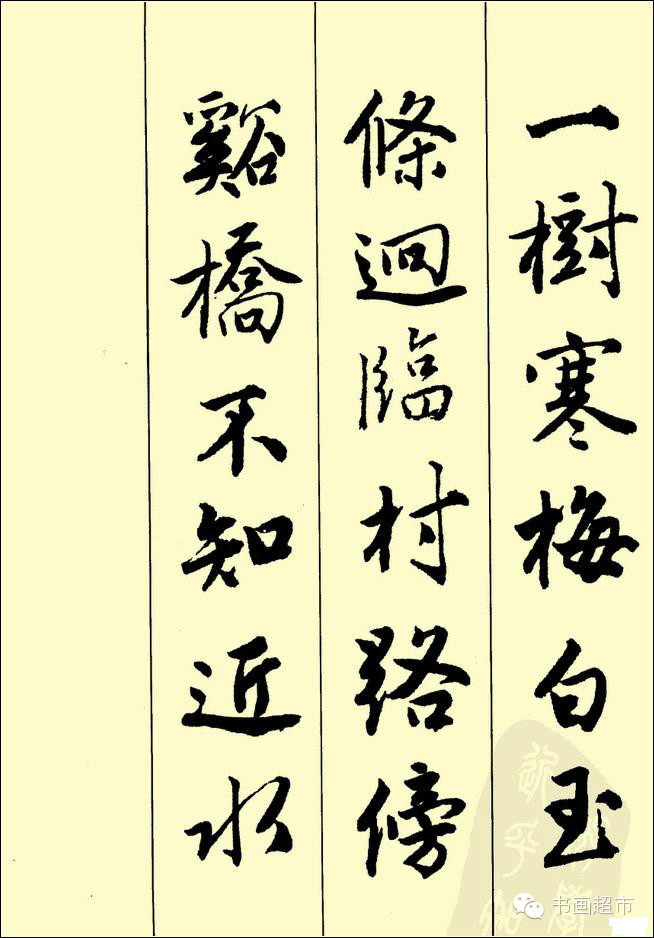 一樹寒梅白玉
條迥臨村路傍
谿橋不知近水
书画超市